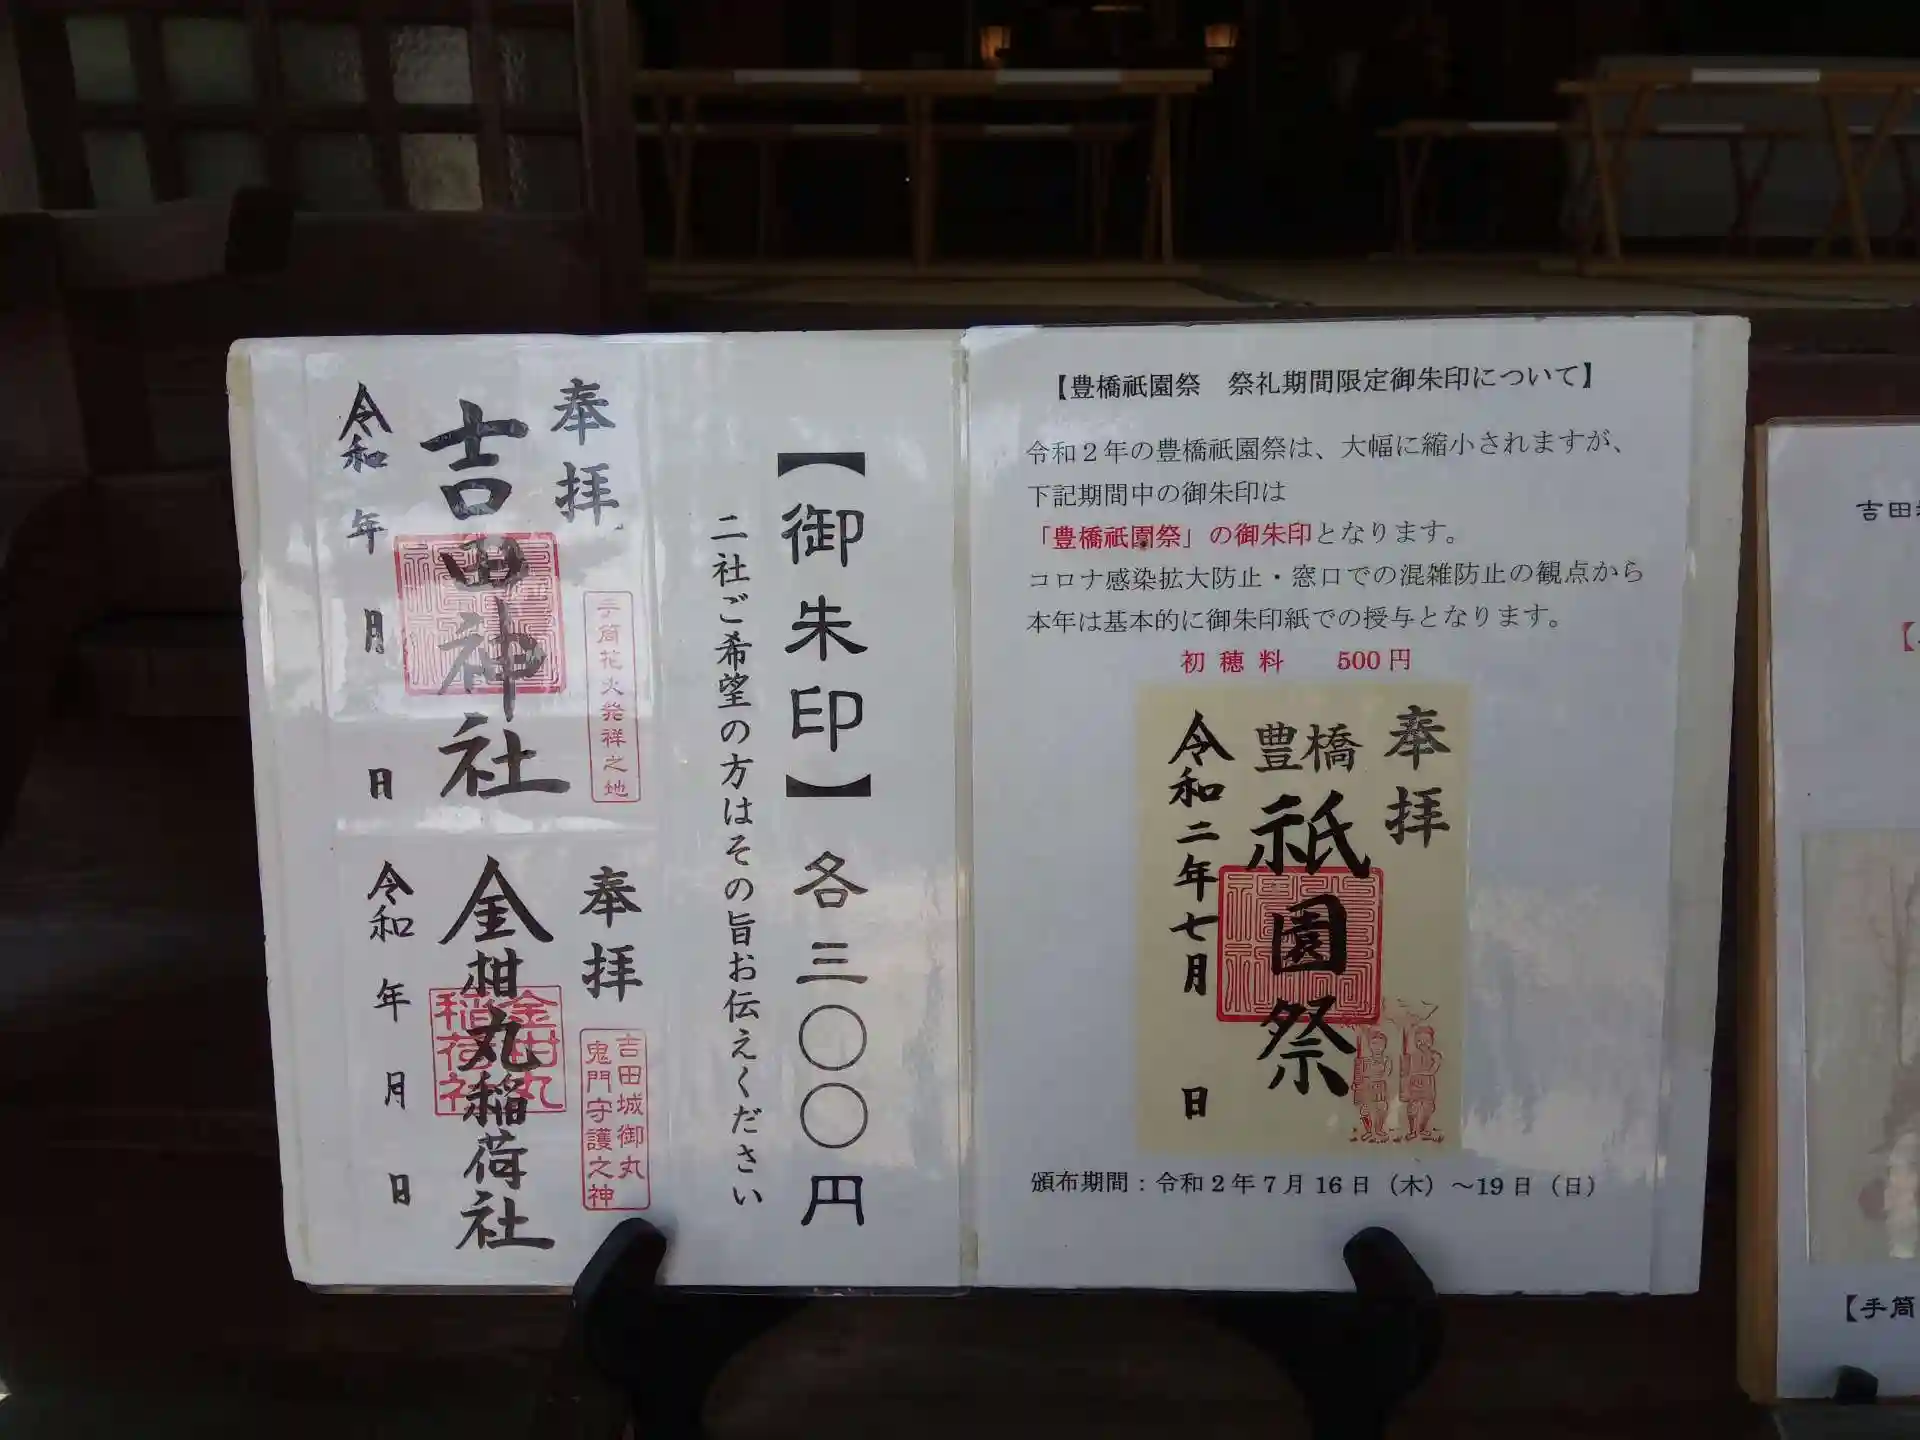 奉拝
吉田神社
令和 年 月 日
手筒花火発祥之地
奉拝
金柑丸稲荷社
令和 年 月 日
吉田城御丸
鬼門守護之神
金柑丸
稲荷社
【御朱印】各三〇〇円
二社ご希望の方はその旨お伝えください
【豊橋祇園祭　祭礼期間限定御朱印について】
令和２年の豊橋祇園祭は、大幅に縮小されますが、
下記期間中の御朱印は
「豊橋祇園祭」の御朱印となります。
コロナ感染拡大防止・窓口での混雑防止の観点から
本年は基本的に御朱印紙での授与となります。
初穂料　500円
奉拝
豊橋
祇園祭
令和二年七月 日
頒布期間：令和２年７月16日（木）～19日（日）
吉田
【手筒